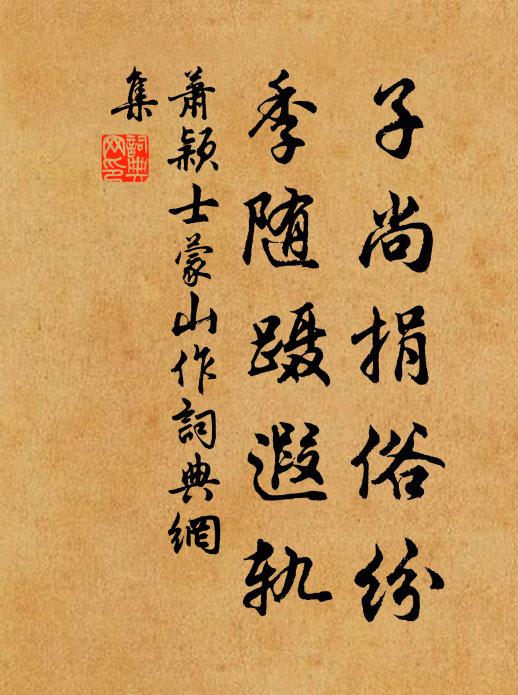 子尚捐俗纷
季随蹑遐轨
萧颖士蒙山作词典網
集
詞典網印